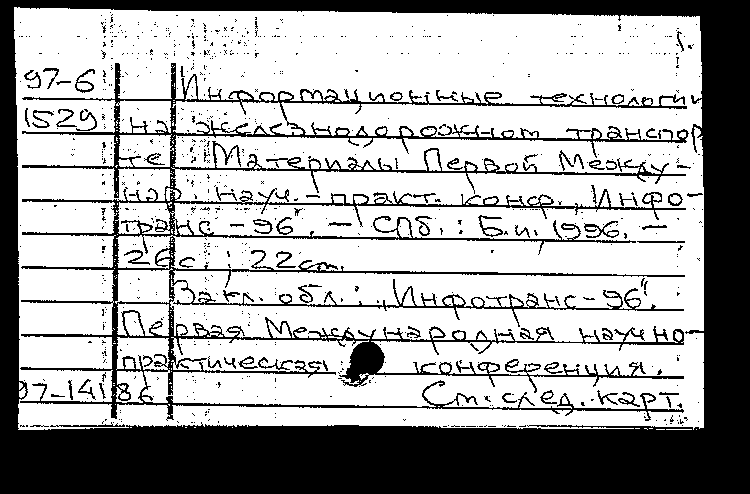 1.
97-6 Информационные технологии
1529 на железнодорожном транспор
те. Материалы Первой Между-
нар. науч.-практ. конф. „Инфо-
транс-96". - СПб.: Б.и., 1996. -
26с.; 22см.
Загл. обл.: „Инфотранс-96".
Первая Международная научно-
практическая конференция.
97-14186 См. след. карт.